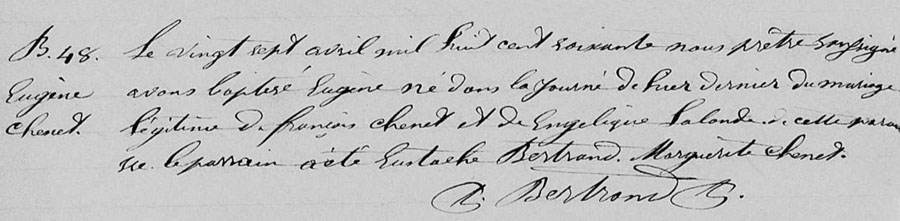 B. 48. Le vingt sept avril mil huit cent soixante nous prêtre soussigné
Eugène avons baptisé Eugène né dans la journé de hier dernier du mariage
Chenet. légitime de françois Chenet et de Engelique Lalonde de cette parois
se. le parrain a été Eustache Bertrand. Marguerite Chenet.
Bertrand